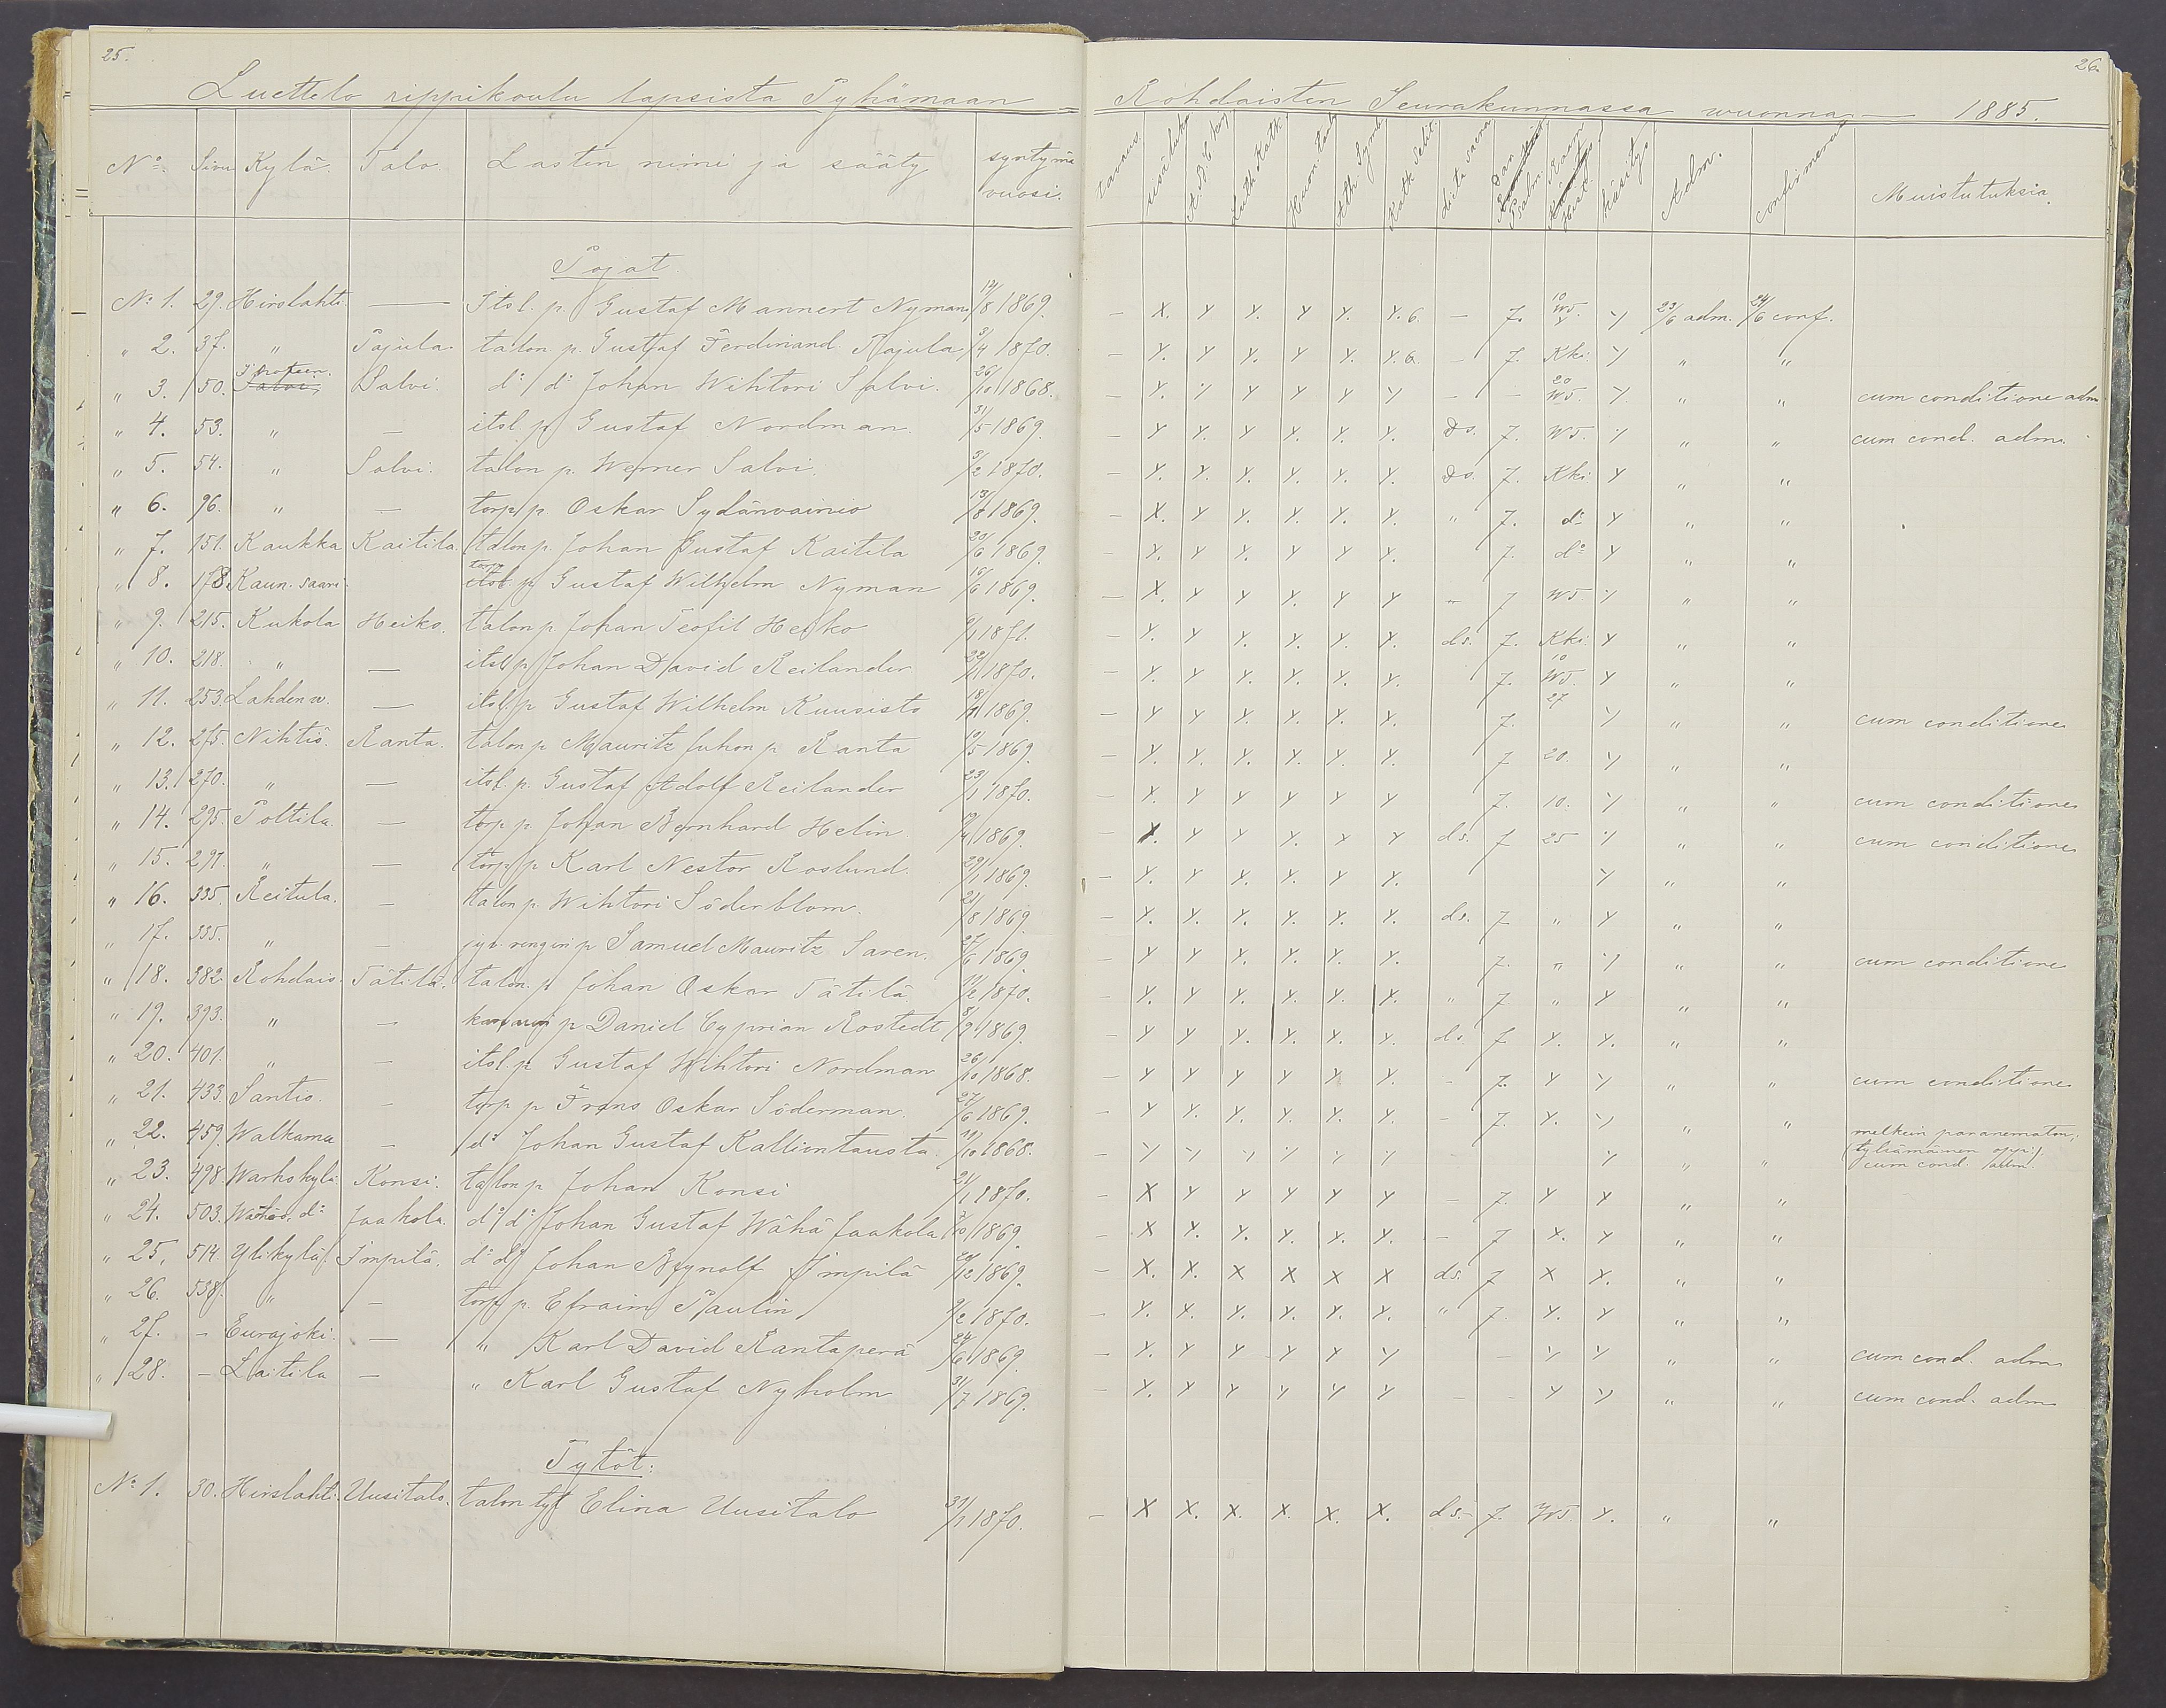 25.
26.
Luettelo rippikoulu lapsista Pyhämaan Rohdaisten Seurakunnassa wuonna 1885.
No. Sivu Kylä. Talo. Lasten nimi ja sääty syntymä vuosi. tavaus sisäluku A.B.C. Luth. Kath. Huon. Taul. Ath. Symb. Kath. Selit. Psalm Hist. käsitys Adm. Muistutuksia.
Pojat.
No 1. 29. Hirslahti — Itsl. p. Gustaf Mannert Nyman 12/8 1869. — X. Y Y Y Y. Y. 6. — 7. 10 W5. Y Y 23/6 adm. 24/6 conf.
" 2. 37. " Pajula. talon p. Gustaf Ferdinand Pajula 3/4 1870. — Y. Y Y. Y Y. Y. 6. — 7. Kki. Y " "
" 3. 150. Salvi. do do Johan Wihtori Salvi. 26/10 1868. — Y. Y Y Y Y Y — — 20 W5. Y. " " cum conditione adm
" 4. 53. " — itsl p. Gustaf Nordman 31/5 1869. — Y Y. Y Y. Y. Y. ds. 7. W5. Y " " cum cond. adm.
" 5. 54. " Salvi. talon p. Werner Salvi. 3/2 1870. — Y. Y. Y. Y. Y. Y. ds. 7. Kki. Y " "
" 6. 96. " — torp. p. Oskar Sydänvainio 13/8 1869. — X. Y Y. Y. Y. Y. " 7. do Y " "
" 7. 151. Kaukka Kaitila. talon p. Johan Gustaf Kaitila 20/6 1869. — Y. Y Y. Y Y Y. 7. do Y " "
" 8. 178. Kaun. saari. torp. itsl. p. Gustaf Wilhelm Nyman 16/6 1869. — X. Y Y Y. Y Y " 7 W5. Y " "
" 9. 215. Kukola Heiko. talon p. Johan Teofil Heiko 9/1 1871. — Y. Y Y. Y. Y. Y. ds. 7. Kki. Y " "
" 10. 218. " — itsl p. Johan David Reilander 22/11 1870. — Y. Y Y. Y. Y. Y. 7. 10 W5. Y " "
" 11. 253. Lahden w. — itsl. p Gustaf Wilhelm Kuusisto 1869. — Y Y Y. Y. Y. Y. 7. 27 Y " " cum conditione
" 12. 275. Nihtiö. Ranta. talon p Mauritz Juhon p. Ranta 9/5 1869. — Y. Y. Y. Y. Y. Y. 7 20. Y " "
" 13. 270. " — itsl. p. Gustaf Adolf Reilander 23/1 1870. — Y. Y Y Y Y Y 7. 10. Y " " cum conditione
" 14. 295. Polttila. — torp p. Johan Bernhard Helin. 1869. — X. Y Y Y. Y Y ds. 7 25 Y " " cum conditione
" 15. 297. " — torp p Karl Nestor Roslund. 29/1 1869. — Y. Y Y. Y. Y Y. Y " "
" 16. 335. Reitula. — talon p. Wihtori Söderblom. 21/8 1869. — Y. Y. Y. Y. Y. Y. ds. 7. " Y " "
" 17. 335. " — jyv. rengin p Samuel Mauritz Saren. 27/6 1869. — Y Y Y. Y. Y. Y. 7. " Y " " cum conditione
" 18. 382. Rohdais. Tätilä. talon. p. Johan Oskar Tätilä 11/2 1870. — Y. Y Y. Y. Y. Y. " 7 " Y " "
" 19. 393. " — p Daniel Cyprian Rostedt 8/9 1869. — Y Y Y. Y. Y. Y. ds. 7 Y. Y. " "
" 20. 401. " — itsl. p. Gustaf Wihtori Nordman 26/10 1868. — Y Y Y Y Y Y. — 7. Y Y " " cum conditione
" 21. 433. Santio. — torp p Frans Oskar Söderman. 27/6 1869. — Y Y. Y. Y. Y. Y. — 7. Y. Y " "
" 22. 459. Walkama — do Johan Gustaf Kalliontausta. 19/10 1868. — Y Y Y Y Y Y Y " " melkein paranematon, (tylsämäinen oppi). cum cond. adm.
" 23. 498. Warhokylä. Konsi. talon p Johan Konsi 21/1 1870. — X Y Y Y Y Y — 7. Y Y " "
" 24. 503. do Jaakola. do do Johan Gustaf Wähä Jaakola 7/10 1869. — X Y. Y. Y. Y. Y. — 7 X. Y " "
" 25. 514. Ylikylä. Impilä. do do Johan Rynolf Impilä 20/12 1869. — X. X. X X X X ds. 7 X X. " "
" 26. 538. " — torp p. Efraim Paulin 9/2 1870. — Y. Y. Y. Y. Y. Y. " 7. Y. Y " "
" 27. — Eurajoki. — " Karl David Rantaperä 24/6 1869. — Y. Y Y Y Y Y — Y Y " " cum cond. adm
" 28. — Laitila — " Karl Gustaf Nyholm 31/7 1869. — Y. Y Y Y Y Y — — Y Y " " cum cond. adm
Tytöt:
No 1. 30. Hirslahti. Uusitalo. talon tyt Elina Uusitalo 31/1 1870. — X X. X. X. X. X. ds. 7. W5. Y. " "